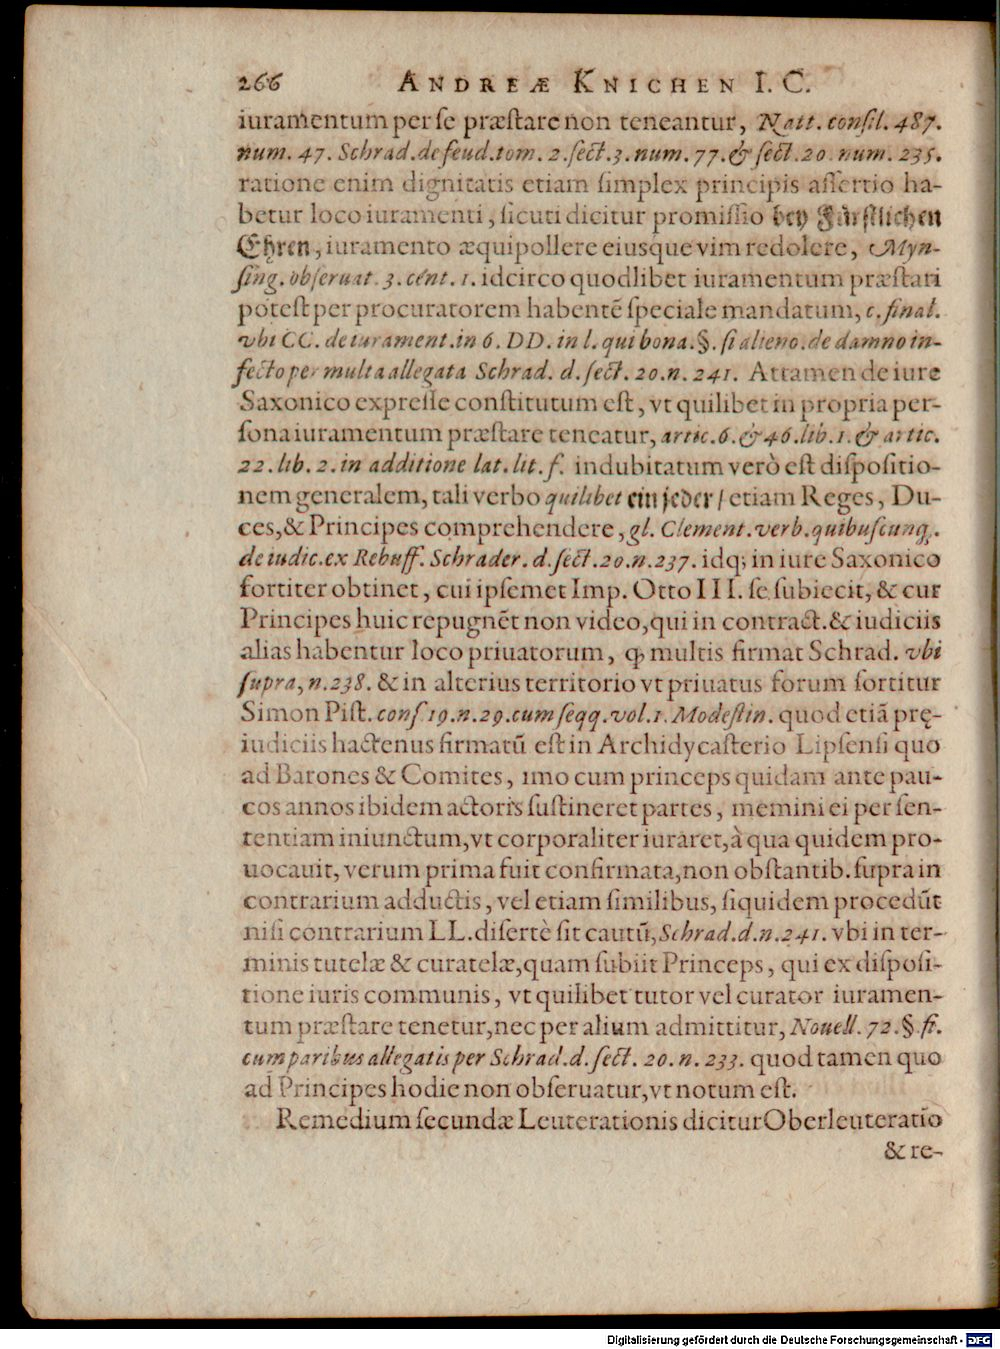 266 ANDREÆ KNICHEN I. C.
iuramentum per se præstare non teneantur, Natt. consil. 487.
num. 47. Schrad. de feud. tom. 2. sect. 3. num. 77. & sect. 20. num. 235.
ratione enim dignitatis etiam simplex principis assertio ha-
betur loco iuramenti, sicuti dicitur promissio bey Fürstlichen
Ehren, iuramento æquipollere eiusque vim redolere, Myn-
sing. obseruat. 3. cent. 1. idcirco quodlibet iuramentum præstari
potest per procuratorem habentē speciale mandatum, c. final.
vbi CC. de iurament. in 6. DD. in l. qui bona. §. si alieno. de damno in-
fecto per multa allegata Schrad. d. sect. 20. n. 241. Attamen de iure
Saxonico expresse constitutum est, vt quilibet in propria per-
sona iuramentum præstare teneatur, artic. 6. & 46. lib. 1. & artic.
22. lib. 2. in additione lat. lit. f. indubitatum verò est dispositio-
nem generalem, tali verbo quilibet ein jeder / etiam Reges, Du-
ces, & Principes comprehendere, gl. Clement. verb. quibuscunq.
de iudic. ex Rebuff. Schrader. d. sect. 20. n. 237. idq; in iure Saxonico
fortiter obtinet, cui ipsemet Imp. Otto III. se subiecit, & cur
Principes huic repugnēt non video, qui in contract. & iudiciis
alias habentur loco priuatorum, ꝙ multis firmat Schrad. vbi
supra, n. 238. & in alterius territorio vt priuatus forum sortitur
Simon Pist. cons. 19. n. 29. cum seqq. vol. 1. Modestin. quod etiā prę-
iudiciis hactenus firmatū est in Archidycasterio Lipsensi quo
ad Barones & Comites, imo cum princeps quidam ante pau-
cos annos ibidem actoris sustineret partes, memini ei per sen-
tentiam iniunctum, vt corporaliter iuraret, à qua quidem pro-
uocauit, verum prima fuit confirmata, non obstantib. supra in
contrarium adductis, vel etiam similibus, siquidem procedūt
nisi contrarium LL. disertè sit cautū, Schrad. d. n. 241. vbi in ter-
minis tutelæ & curatelæ, quam subiit Princeps, qui ex disposi-
tione iuris communis, vt quilibet tutor vel curator iuramen-
tum præstare tenetur, nec per alium admittitur, Nouell. 72. §. fi.
cum paribus allegatis per Schrad. d. sect. 20. n. 233. quod tamen quo
ad Principes hodie non obseruatur, vt notum est.
Remedium secundæ Leuterationis dicitur Oberleuteratio
& re-
Digitalisierung gefördert durch die Deutsche Forschungsgemeinschaft - DFG